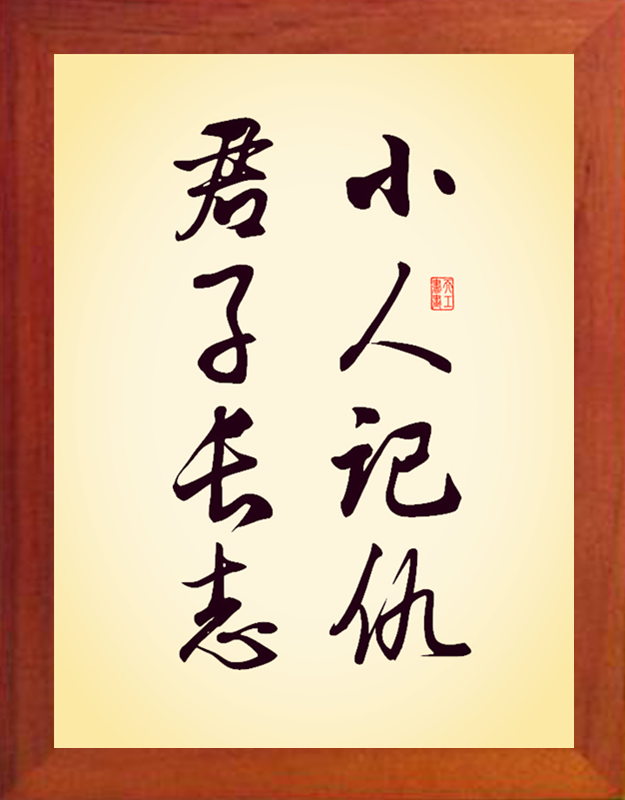 小人记仇
君子长志